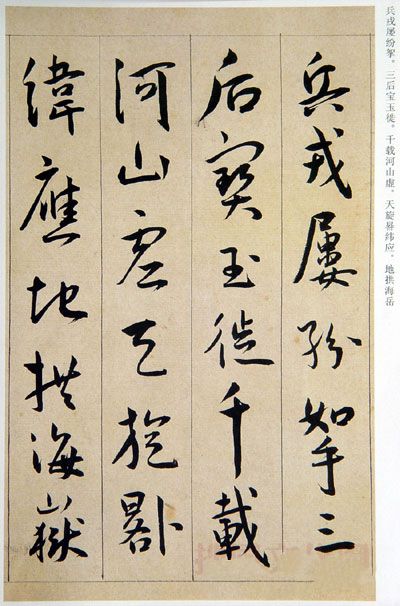 兵戎屡纷挐。三后宝玉徙。千载河山虚。天旋晷纬应。地拱海岳
兵戎屢紛挐三
后寶玉徙千載
河山虛天旋晷
緯應地拱海嶽